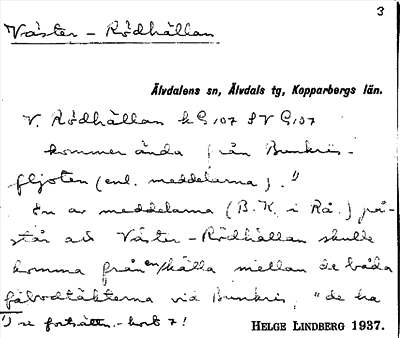 3
Väster - Rödhällan
Älvdalens sn, Älvdals tg, Kopparbergs län.
V. Rödhällan k G:07 SV G:07
kommer ända från Bunkris-
fljoten (enl. meddelarna). 1)
En av meddelarna (B.K. i Rå.) på-
står att Väster-Rödhällan skulle
komma från en källa mellan de båda
fäbodtäkterna vid Bunkris, "de ha
1) se fortsättn.-kort 7!
HELGE LINDBERG 1937.